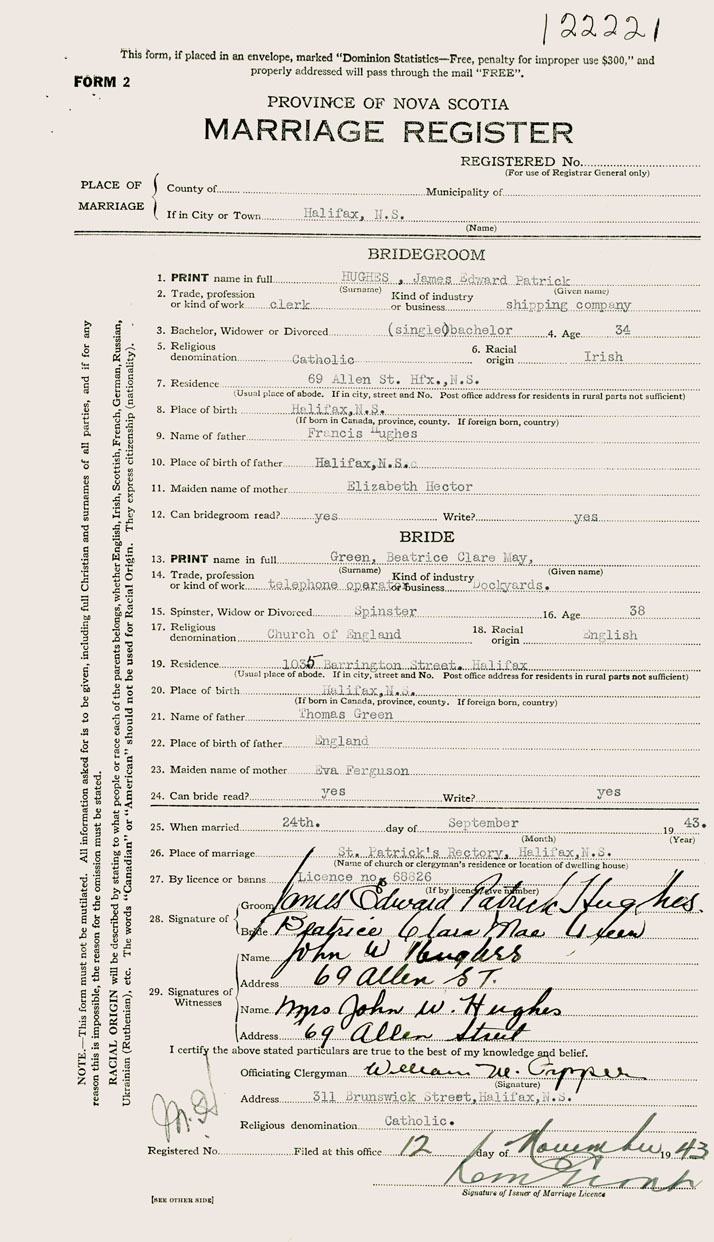 122221
This form, if placed in an envelope, marked "Dominion Statistics—Free, penalty for improper use $300," and
properly addressed will pass through the mail "FREE".
FORM 2
PROVINCE OF NOVA SCOTIA
MARRIAGE REGISTER
REGISTERED No.
(For use of Registrar General only)
PLACE OF MARRIAGE
County of Municipality of
If in City or Town Halifax, N.S.
(Name)
BRIDEGROOM
1. PRINT name in full HUGHES , James Edward Patrick
(Surname) (Given name)
2. Trade, profession or kind of work clerk Kind of industry or business shipping company
3. Bachelor, Widower or Divorced (single) bachelor 4. Age 34
5. Religious denomination Catholic 6. Racial origin Irish
7. Residence 69 Allen St. Hfx.,N.S.
(Usual place of abode. If in city, street and No. Post office address for residents in rural parts not sufficient)
8. Place of birth Halifax,N.S.
(If born in Canada, province, county. If foreign born, country)
9. Name of father Francis Hughes
10. Place of birth of father Halifax,N.S.
11. Maiden name of mother Elizabeth Hector
12. Can bridegroom read? yes Write? yes
BRIDE
13. PRINT name in full Green, Beatrice Clare May,
(Surname) (Given name)
14. Trade, profession or kind of work telephone operator Kind of industry or business Dockyards.
15. Spinster, Widow or Divorced Spinster 16. Age 38
17. Religious denomination Church of England 18. Racial origin English
19. Residence 1035 Barrington Street. Halifax
(Usual place of abode. If in city, street and No. Post office address for residents in rural parts not sufficient)
20. Place of birth Halifax,N.S.
(If born in Canada, province, county. If foreign born, country)
21. Name of father Thomas Green
22. Place of birth of father England
23. Maiden name of mother Eva Ferguson
24. Can bride read? yes Write? yes
25. When married 24th. day of September 1943.
(Month) (Year)
26. Place of marriage St. Patrick's Rectory, Halifax,N.S.
(Name of church or clergyman's residence or location of dwelling house)
27. By licence or banns Licence no. 68826
(If by licence give number)
28. Signature of
Groom James Edward Patrick Hughes.
Bride Beatrice Clara Mae Green
29. Signatures of Witnesses
Name John W Hughes
Address 69 Allen ST.
Name Mrs John W. Hughes
Address 69 Allen Street
I certify the above stated particulars are true to the best of my knowledge and belief.
Officiating Clergyman William M.
(Signature)
Address 311 Brunswick Street,Halifax,N.S.
Religious denomination Catholic.
Registered No. Filed at this office 12 day of November 1943
Signature of Issuer of Marriage Licence
[SEE OTHER SIDE]
NOTE.—This form must not be mutilated. All information asked for is to be given, including full Christian and surnames of all parties, and if for any
reason this is impossible, the reason for the omission must be stated.
RACIAL ORIGIN will be described by stating to what people or race each of the parents belongs, whether English, Irish, Scottish, French, German, Russian,
Ukrainian (Ruthenian), etc. The words "Canadian" or "American" should not be used for Racial Origin. They express citizenship (nationality).